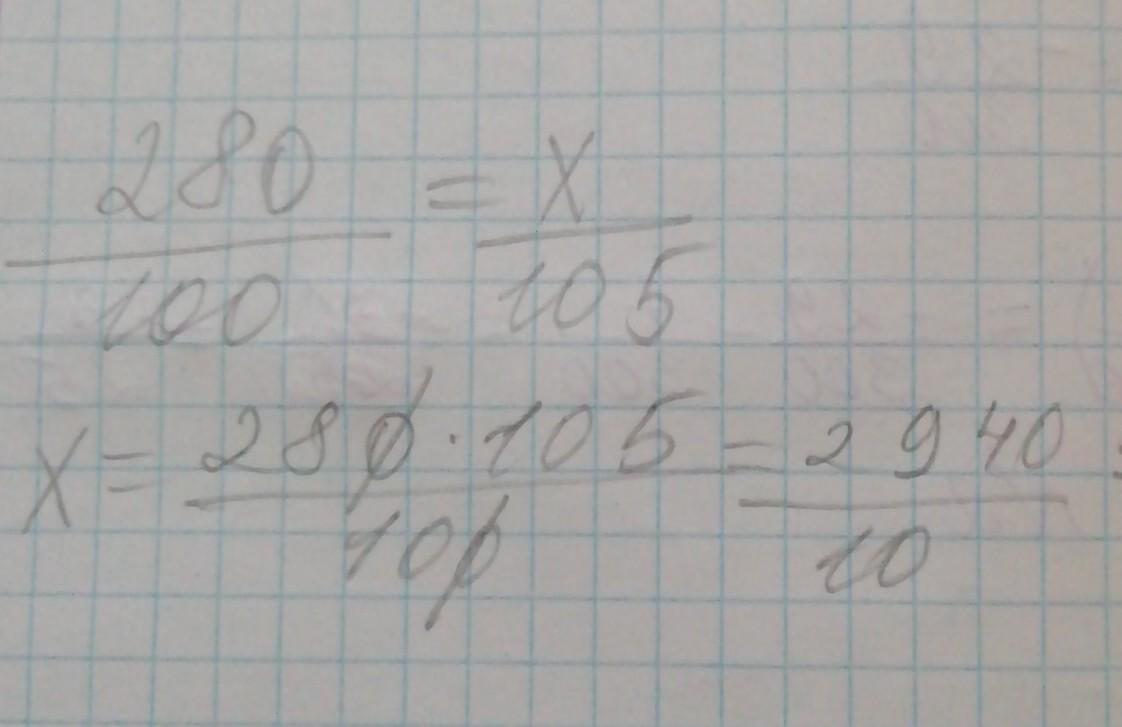 280/100 = x/105
x = 280·105/100 = 2940/10